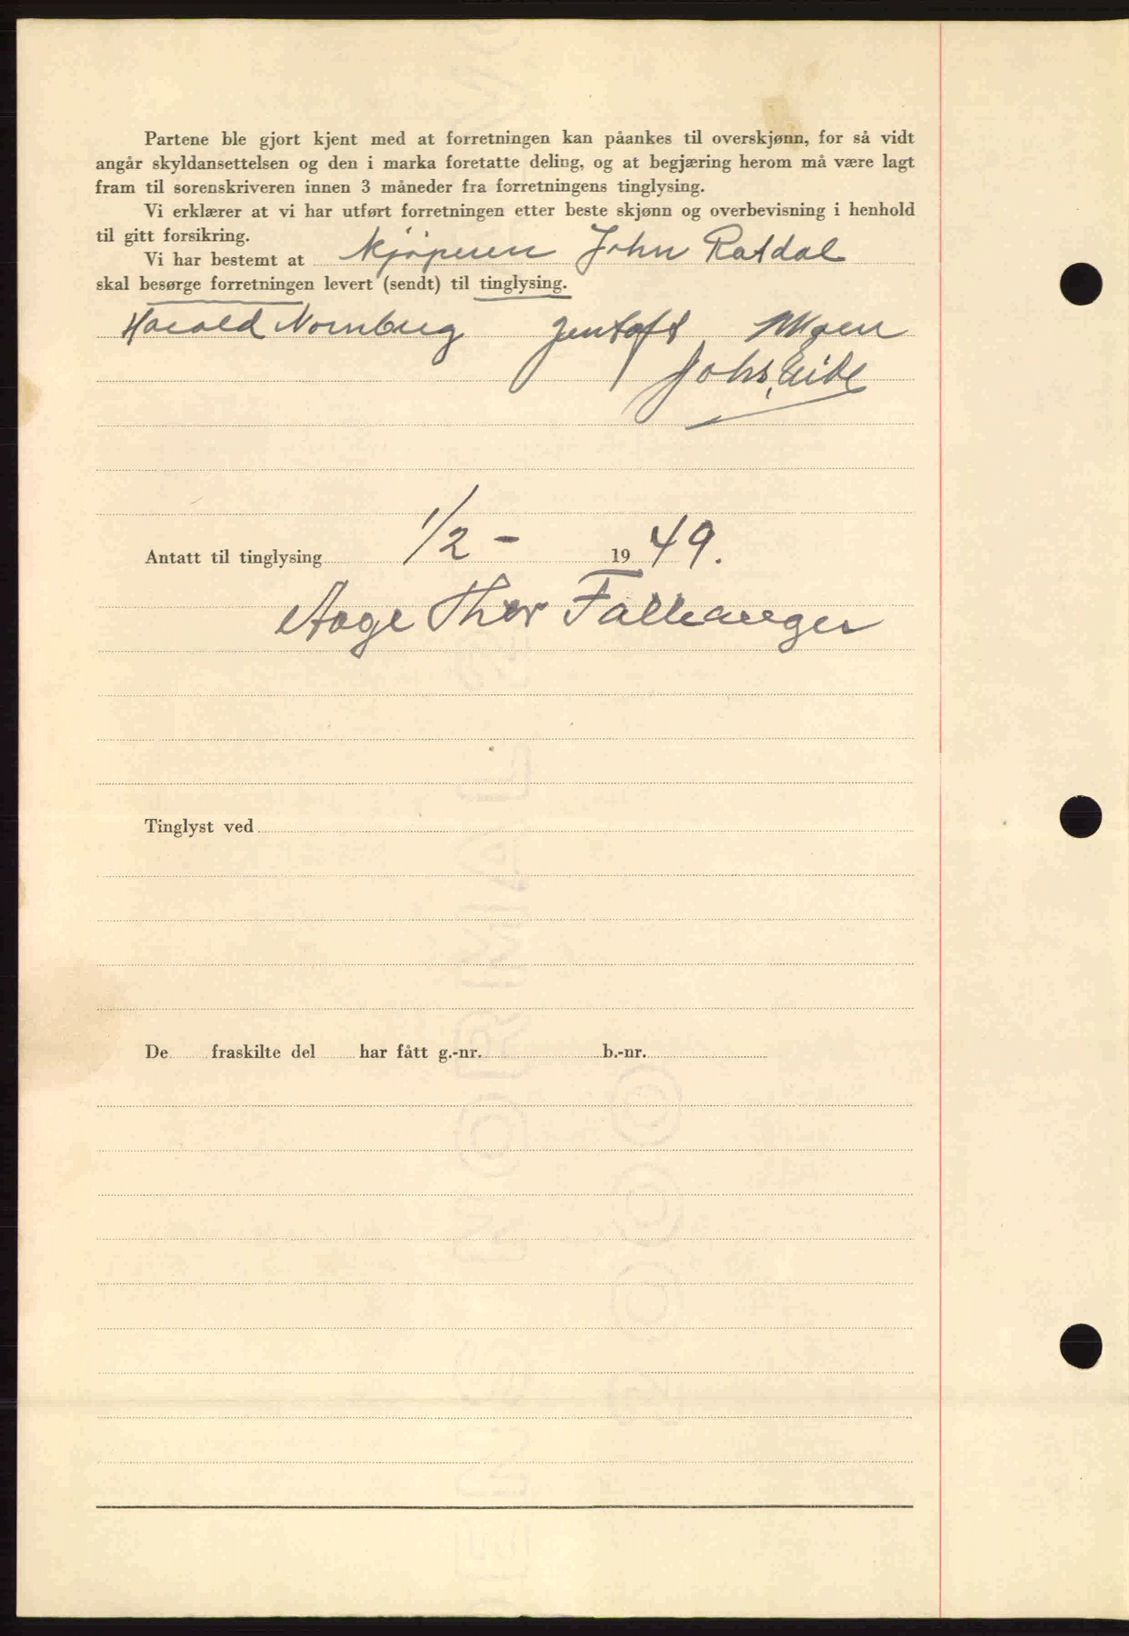 Partene ble gjort kjent med at forretningen kan påankes til overskjønn, for så vidt
angår skyldansettelsen og den i marka foretatte deling, og at begjæring herom må være lagt
fram til sorenskriveren innen 3 måneder fra forretningens tinglysing.
Vi erklærer at vi har utført forretningen etter beste skjønn og overbevisning i henhold
til gitt forsikring.
Vi har bestemt at kjøperen John Rotdal
skal besørge forretningen levert (sendt) til tinglysing.
Harald Nornberg Jentoft Moen
Johs. Eide
Antatt til tinglysing 1/2 - 1949.
Aage Thor Falkanger
Tinglyst ved
De fraskilte del har fått g.-nr. b.-nr.